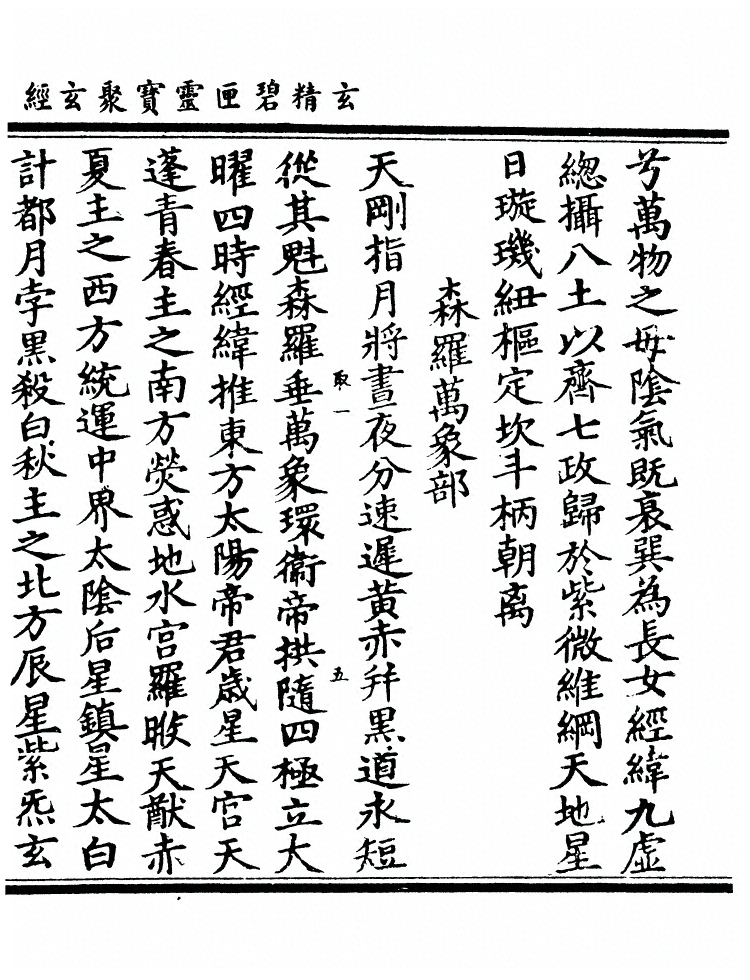 玄精碧匣靈寶聚玄經
兮萬物之母陰氣既衰巽為長女經緯九虛
緫攝八土以齊七政歸於紫微維綱天地星
日璇璣紐樞定坎斗柄朝离
森羅萬象部
天剛指月將晝夜分速遲黃赤幷黑道永短
從其魁森羅垂萬象環衛帝拱隨四極立大
取一
五
曜四時經緯推東方太陽帝君歲星天宮天
蓬青春主之南方熒惑地水宮羅睺天猷赤
夏主之西方統運中界太陰后星鎮星太白
計都月孛黑殺白秋主之北方辰星紫炁玄